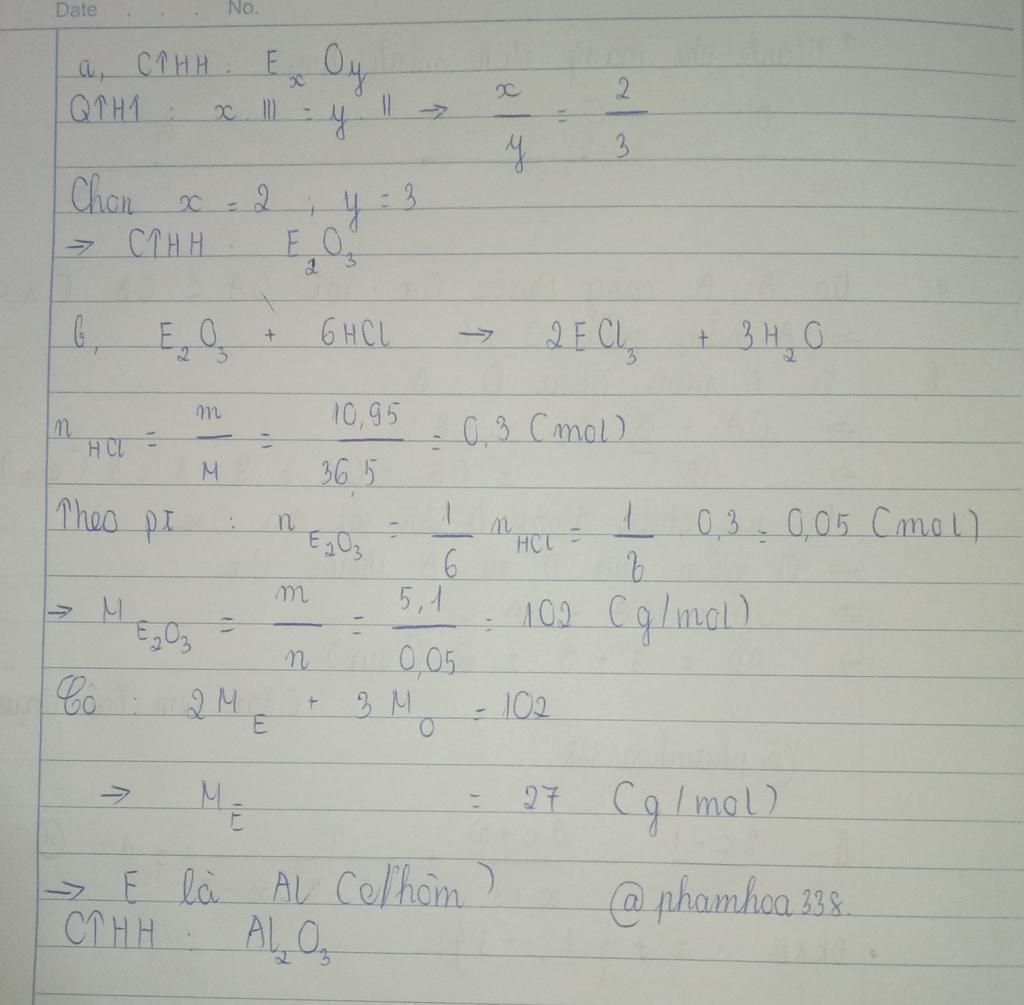 Date . . . No.
a, CTHH : ExOy
QTHT : x. III = y. II → x/y = 2/3
Chọn x = 2 ; y = 3
⇒ CTHH : E2O3
b, E2O3 + 6HCl → 2ECl3 + 3H2O
nHCl = m/M = 10,95/36,5 = 0,3 (mol)
Theo pt : nE2O3 = 1/6 nHCl = 1/6 . 0,3 = 0,05 (mol)
⇒ ME2O3 = m/n = 5,1/0,05 = 102 (g/mol)
Có : 2ME + 3MO = 102
⇒ ME = 27 (g/mol)
⇒ E là Al ( )
@phamhoa338.
CTHH : Al2O3